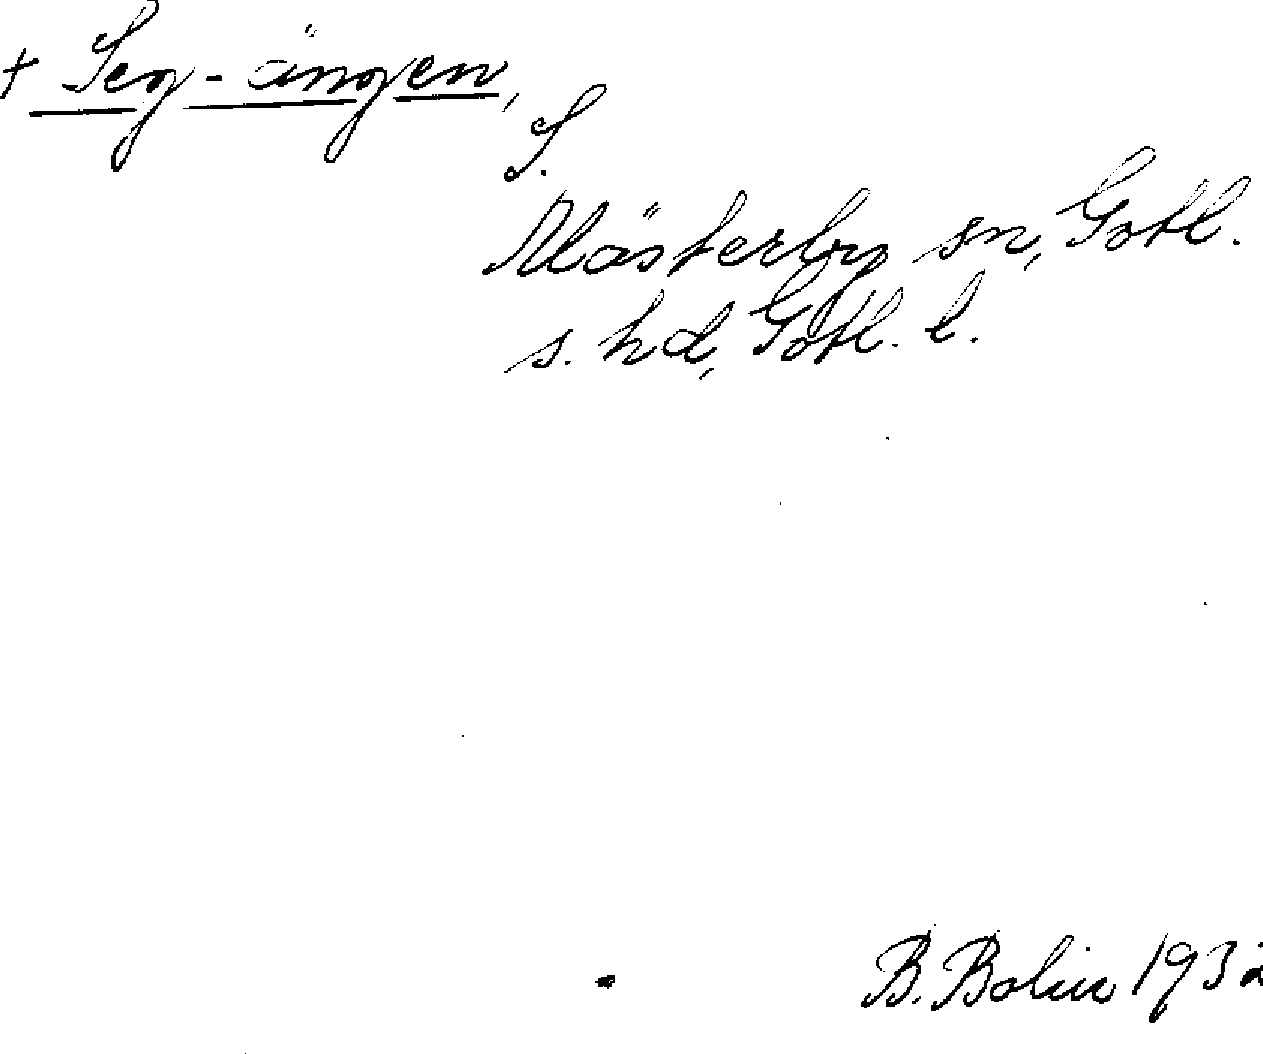 + Seg-ängen,
S.
Mästerby sn, Gotl.
s. hd, Gotl. l.
B. Bolin 1932